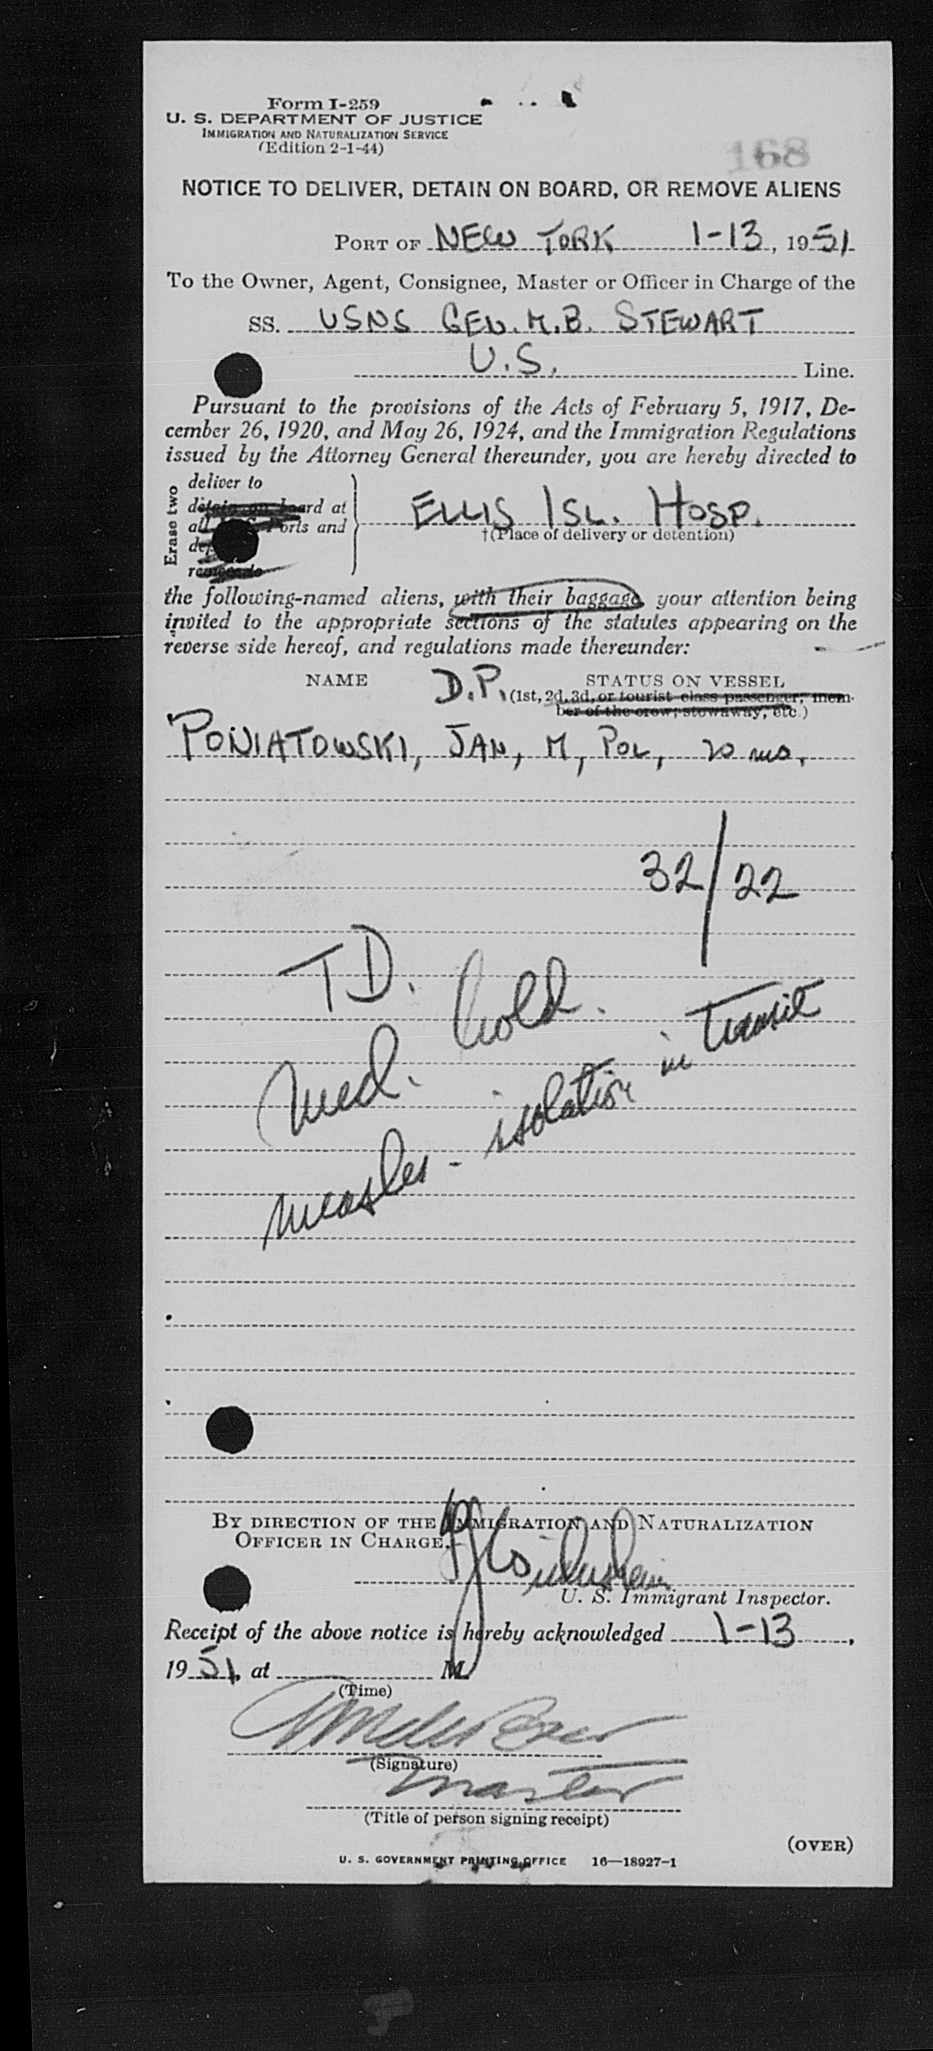 Form I-259
U. S. DEPARTMENT OF JUSTICE
IMMIGRATION AND NATURALIZATION SERVICE
(Edition 2-1-44)
168
NOTICE TO DELIVER, DETAIN ON BOARD, OR REMOVE ALIENS
PORT OF NEW YORK 1-13, 1951
To the Owner, Agent, Consignee, Master or Officer in Charge of the
SS. USNS GEN. M.B. STEWART
U.S. Line.
Pursuant to the provisions of the Acts of February 5, 1917, De-
cember 26, 1920, and May 26, 1924, and the Immigration Regulations
issued by the Attorney General thereunder, you are hereby directed to
Erase two
deliver to
detain on board at
all Ports and
ELLIS ISL. HOSP.
†(Place of delivery or detention)
the following-named aliens, with their baggage your attention being
invited to the appropriate sections of the statutes appearing on the
reverse side hereof, and regulations made thereunder:
NAME D.P. STATUS ON VESSEL
(1st, 2d, 3d, or tourist class passenger, mem-
ber of the crew, stowaway, etc.)
PONIATOWSKI, JAN, M, POL, 20 mo.
32/22
TD.
Med. hold.
measles - isolation in transit
BY DIRECTION OF THE IMMIGRATION AND NATURALIZATION
OFFICER IN CHARGE.
U. S. Immigrant Inspector.
Receipt of the above notice is hereby acknowledged 1-13,
1951, at M.
(Time)
(Signature)
master
(Title of person signing receipt)
(OVER)
U. S. GOVERNMENT PRINTING OFFICE 16—18927-1